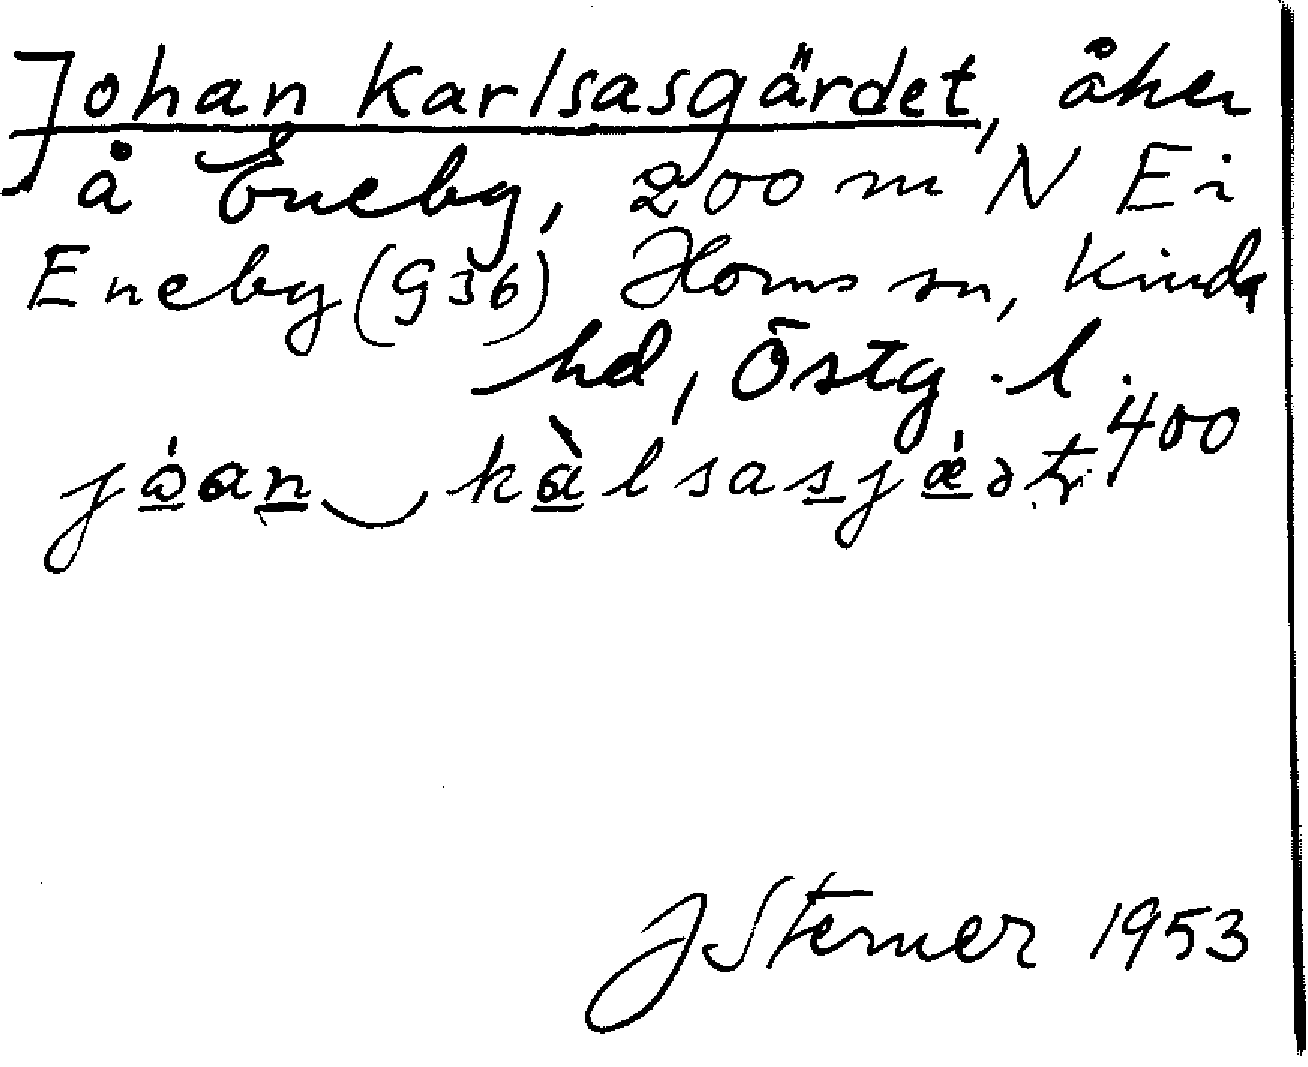 Johan Karlsasgärdet, åker
å Eneby, 200 m N E i
Eneby (936) Horns sn, Kinda
hd, Östg. l.
400
jóan kàlsasjæ
J Sterner 1953